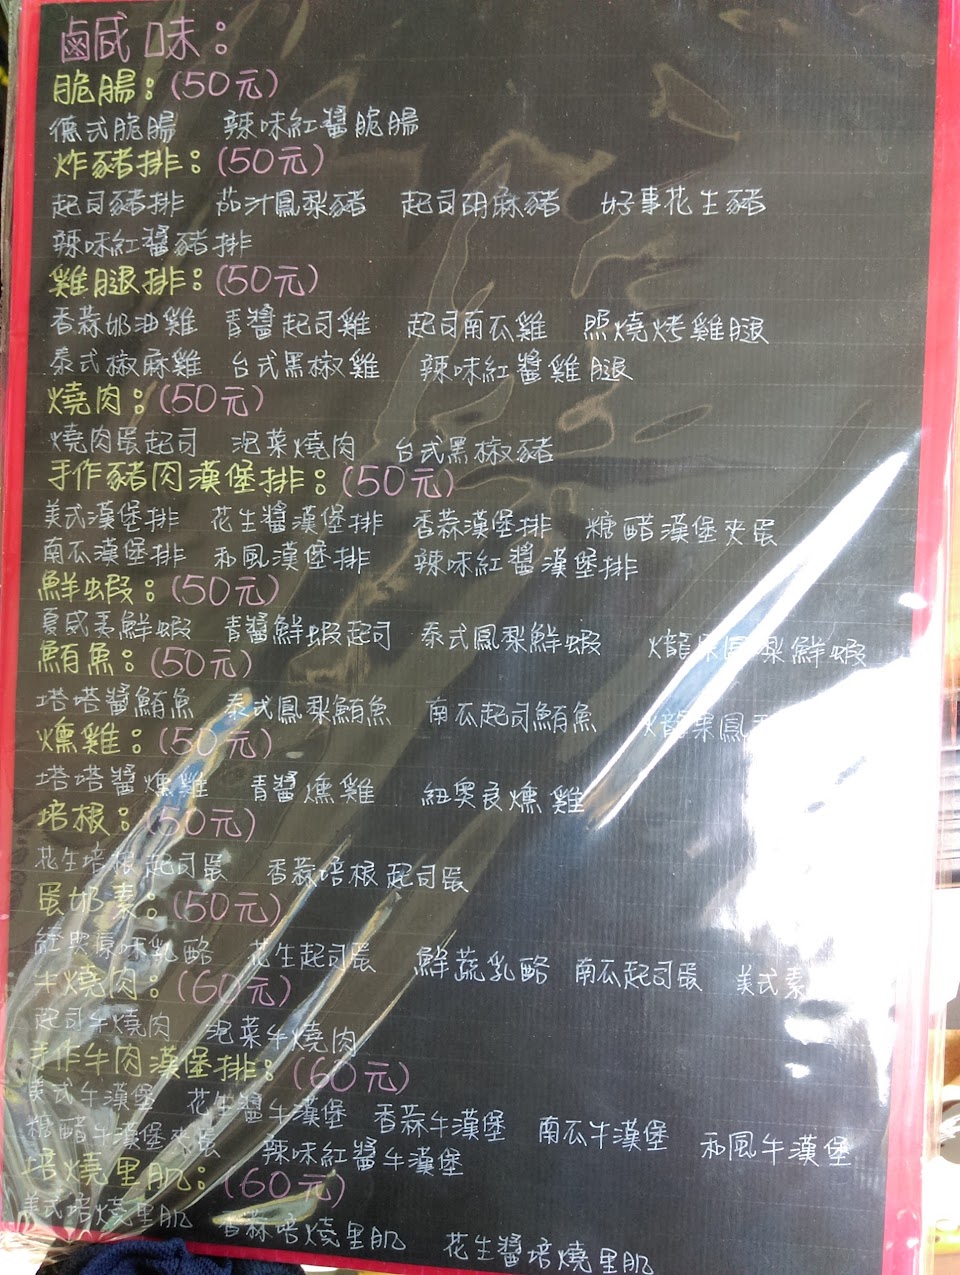 鹵咸味:
脆腸:(50元)
德式脆腸 辣味紅醬脆腸
炸豬排:(50元)
起司豬排 茄汁鳳梨豬 起司胡麻豬 好事花生豬
辣味紅醬豬排
雞腿排:(50元)
香蒜奶油雞 青醬起司雞 起司南瓜雞 照燒烤雞腿
泰式椒麻雞 台式黑椒雞 辣味紅醬雞腿
燒肉:(50元)
燒肉蛋起司 泡菜燒肉 台式黑椒豬
手作豬肉漢堡排:(50元)
美式漢堡排 花生醬漢堡排 香蒜漢堡排 糖醋漢堡夾蛋
南瓜漢堡排 和風漢堡排 辣味紅醬漢堡排
鮮蝦:(50元)
夏威夷鮮蝦 青醬鮮蝦起司 泰式鳳梨鮮蝦 火龍果鳳梨鮮蝦
鮪魚:(50元)
塔塔醬鮪魚 泰式鳳梨鮪魚 南瓜起司鮪魚 火龍果鳳
燻雞:(50元)
塔塔醬燻雞 青醬燻雞 紐奧良燻雞
培根:(50元)
花生培根起司蛋 香蒜培根起司蛋
蛋奶素:(50元)
經典原味乳酪 花生起司蛋 鮮蔬乳酪 南瓜起司蛋 美式素
牛燒肉:(60元)
起司牛燒肉 泡菜牛燒肉
手作牛肉漢堡排:(60元)
美式牛漢堡 花生醬牛漢堡 香蒜牛漢堡 南瓜牛漢堡 和風牛漢堡
糖醋牛漢堡夾蛋 辣味紅醬牛漢堡
培燒里肌:(60元)
美式培燒里肌 香蒜培燒里肌 花生醬培燒里肌